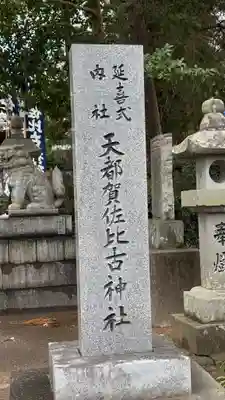 延喜式
内社
天都賀佐比古神社
奉燈